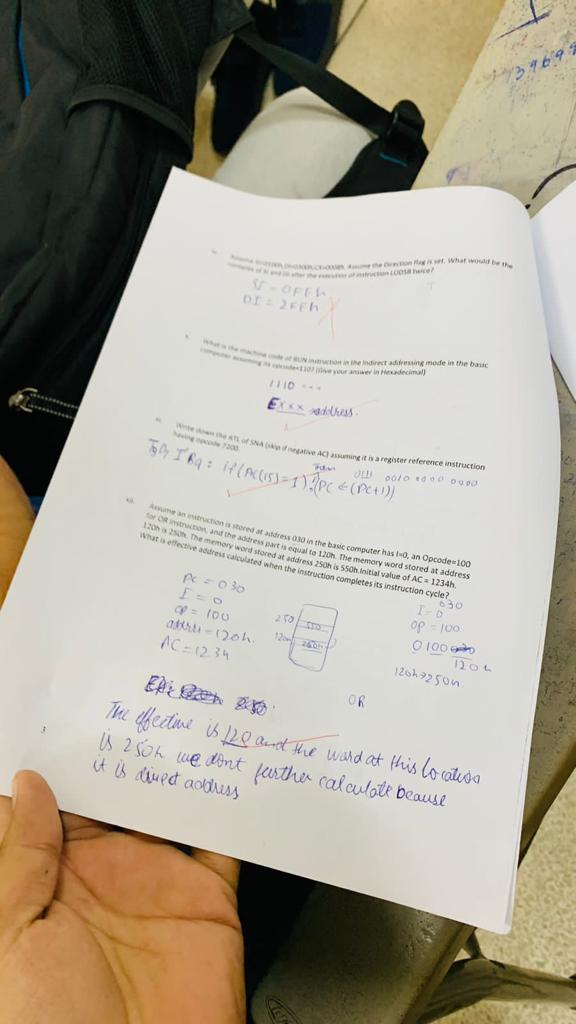 139699
Assume SI=0100h, DI=0300h, CX=0008h. Assume the Direction flag is set. What would be the
contents of SI and DI after the execution of instruction LODSB twice?
SI = 0FFh
DI = 2FFh
What is the machine code of BUN instruction in the Indirect addressing mode in the basic
computer assuming its opcode=110? (Give your answer in Hexadecimal)
1110 ---
Exxx address.
xi. Write down the RTL of SNA (skip if negative AC) assuming it is a register reference instruction
having opcode 7200.
Then 0111 0010 0000 0000
if (AC(15)=1) : (PC ← (PC+1))
xii. Assume an instruction is stored at address 030 in the basic computer has I=0, an Opcode=100
for OR instruction, and the address part is equal to 120h. The memory word stored at address
120h is 250h. The memory word stored at address 250h is 550h.Initial value of AC = 1234h.
What is effective address calculated when the instruction completes its instruction cycle?
PC = 030
I = 0
OP = 100
address = 120h.
AC = 1234
250 550
120h 250h
030
I = 0
OP = 100
0 100
120h
120h→250h
OR
The effective is 120 and the word at this location
is 250h we dont further calculate beause
it is direct address
3